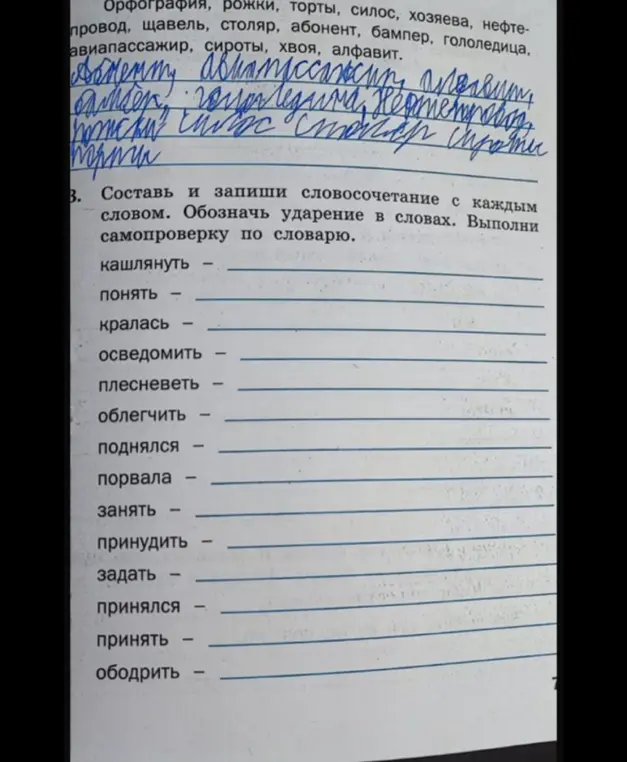 Орфография, рожки, торты, силос, хозяева, нефте-
провод, щавель, столяр, абонент, бампер, гололедица,
авиапассажир, сироты, хвоя, алфавит.
Абонент, авиапассажир, алфавит,
бампер, гололедица, нефтепровод,
рожки силос столяр сироты
торты
3. Составь и запиши словосочетание с каждым
словом. Обозначь ударение в словах. Выполни
самопроверку по словарю.
кашлянуть –
понять –
кралась –
осведомить –
плесневеть –
облегчить –
поднялся –
порвала –
занять –
принудить –
задать –
принялся –
принять –
ободрить –
7